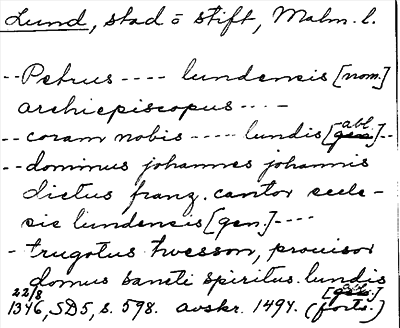 Lund, stad o stift, Malm. l.
-- Petrus ---- lundensis [nom.]
archiepiscopus -- -
-- coram nobis ----- lundis [gen. abl.] --
-- dominus johannes johannis
dictus franz. cantor eccle-
sie lundensis [gen.] ----
- trugotus twesson, prouisor
domus sancti spiritus lundis
22/8 [gen. abl.]
1346, SD5, s. 598. avskr. 1494. (forts.)